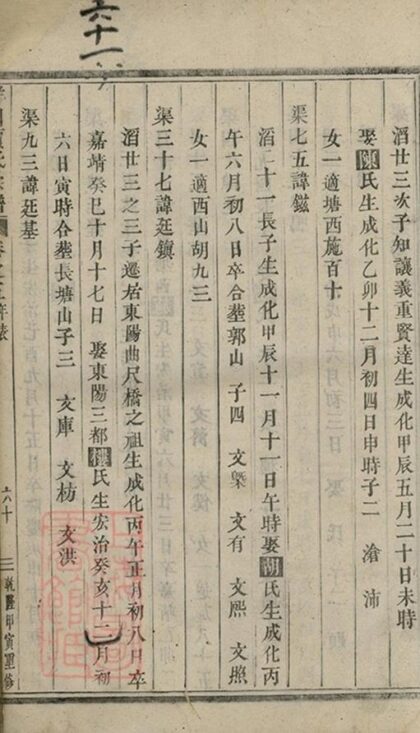 六十一
酒廿三次子知讓義重賢達生成化甲辰五月二十日未時
娶陳氏生成化乙卯十二月初四日申時子二 滄 沛
女一適塘西施百十
渠七五諱鎡
酒二十一長子生成化甲辰十一月十一日午時娶胡氏生成化丙
午六月初八日卒合塟郭山 子四 文槩 文有 文熈 文照
女一適西山胡九三
渠三十七諱廷鎮
酒廿三之三子遷居東陽曲尺橋之祖生成化丙午正月初八日卒
嘉靖癸巳十月十七日 娶東陽三都樓氏生宏治癸亥十二月初
六日寅時合塟長塘山子三 文庫 文枋 文洪
渠九三諱廷基
六十
乾隆甲寅重修